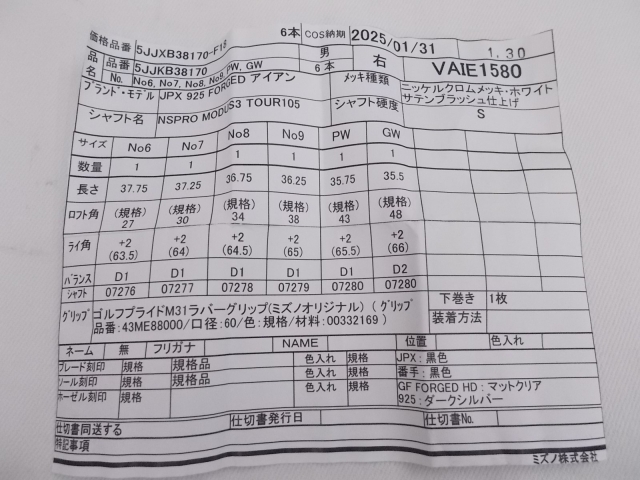 価格品番 5JJXB38170-F18 6本 COS納期 2025/01/31 1.30
品名 品番 5JJKB38170 男 右 VAIE1580
No. No6, No7, No8, No9, PW, GW 6本
ブランド・モデル JPX 925 FORGED アイアン メッキ種類 ニッケルクロムメッキ・ホワイト
サテンブラッシュ仕上げ
シャフト名 NSPRO MODUS3 TOUR105 シャフト硬度 S
サイズ No6 No7 No8 No9 PW GW
数量 1 1 1 1 1 1
長さ 37.75 37.25 36.75 36.25 35.75 35.5
ロフト角 (規格) (規格) (規格) (規格) (規格) (規格)
27 30 34 38 43 48
ライ角 +2 +2 +2 +2 +2 +2
(63.5) (64) (64.5) (65) (65.5) (66)
バランス D1 D1 D1 D1 D1 D2
シャフト 07276 07277 07278 07279 07280 07280
グリップ ゴルフプライドM31ラバーグリップ(ミズノオリジナル) (グリップ 下巻き 1枚
品番:43ME88000/口径:60/色:規格/材料:00332169) 装着方法
ネーム 無 フリガナ NAME 位置 色入れ
ブレード刻印 規格 規格品 色入れ 規格 JPX:黒色
ソール刻印 規格 規格品 色入れ 規格 番手:黒色
ホーゼル刻印 規格 色入れ 規格 GF FORGED HD:マットクリア
925:ダークシルバー
仕切書同送する 仕切書発行日 仕切書No.
特記事項
ミズノ株式会社